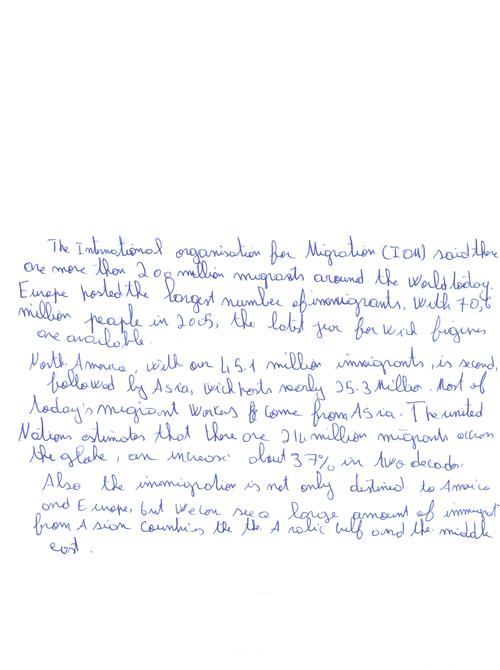 The International organisation for Migration (IOM) said there
are more than 200 million migrants around the world today.
Europe hosted the largest number of immigrants, with 70,6
million people in 2005, the latest year for wich figures
are available.
North America, with over 45.1 million immigrants, is second,
followed by Asia, wich hosts nearly 25.3 Million. Most of
today's migrant workers come from Asia. The united
Nations estimates that there are 214 million migrants across
the globe, an increase about 37% in two decades.
Also the immigration is not only destined to America
and Europe, but we can see a large amount of immigrant
from Asian countries the Arabic gulf and the middle
east.